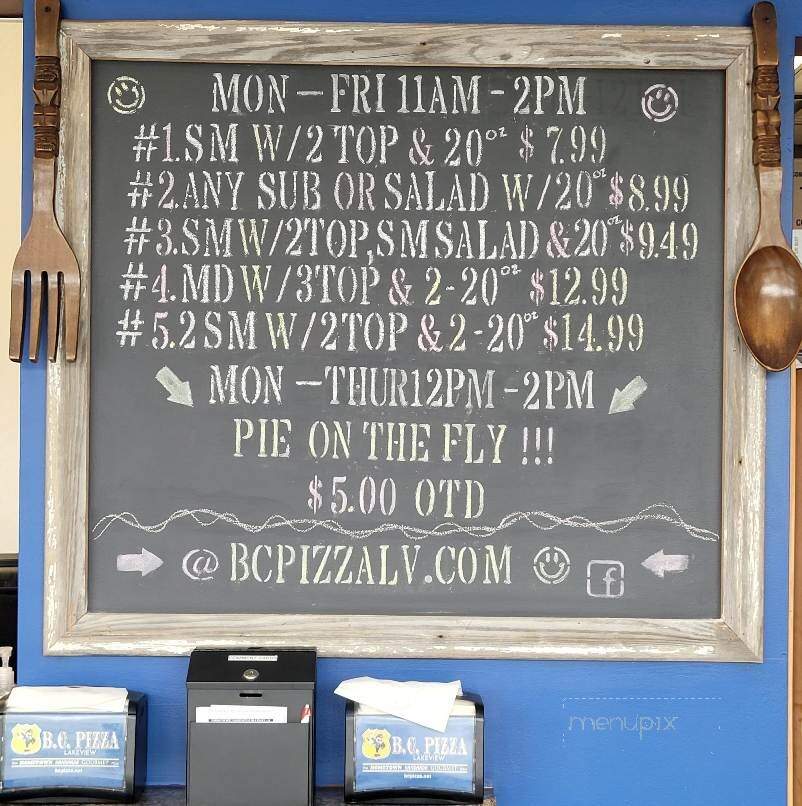 MON – FRI 11AM - 2PM
#1.SM W/2 TOP & 20oz $7.99
#2.ANY SUB OR SALAD W/20oz $8.99
#3.SM W/2TOP,SM SALAD &20oz $9.49
#4.MD W/3TOP & 2-20oz $12.99
#5.2 SM W/2TOP & 2-20oz $14.99
MON – THUR 12PM - 2PM
PIE ON THE FLY !!!
$5.00 OTD
@ BCPIZZALV.COM f
B.C. PIZZA
LAKEVIEW
HOMETOWN GOURMET
bcpizza.net
B.C. PIZZA
LAKEVIEW
HOMETOWN GOURMET
bcpizza.net
menupix